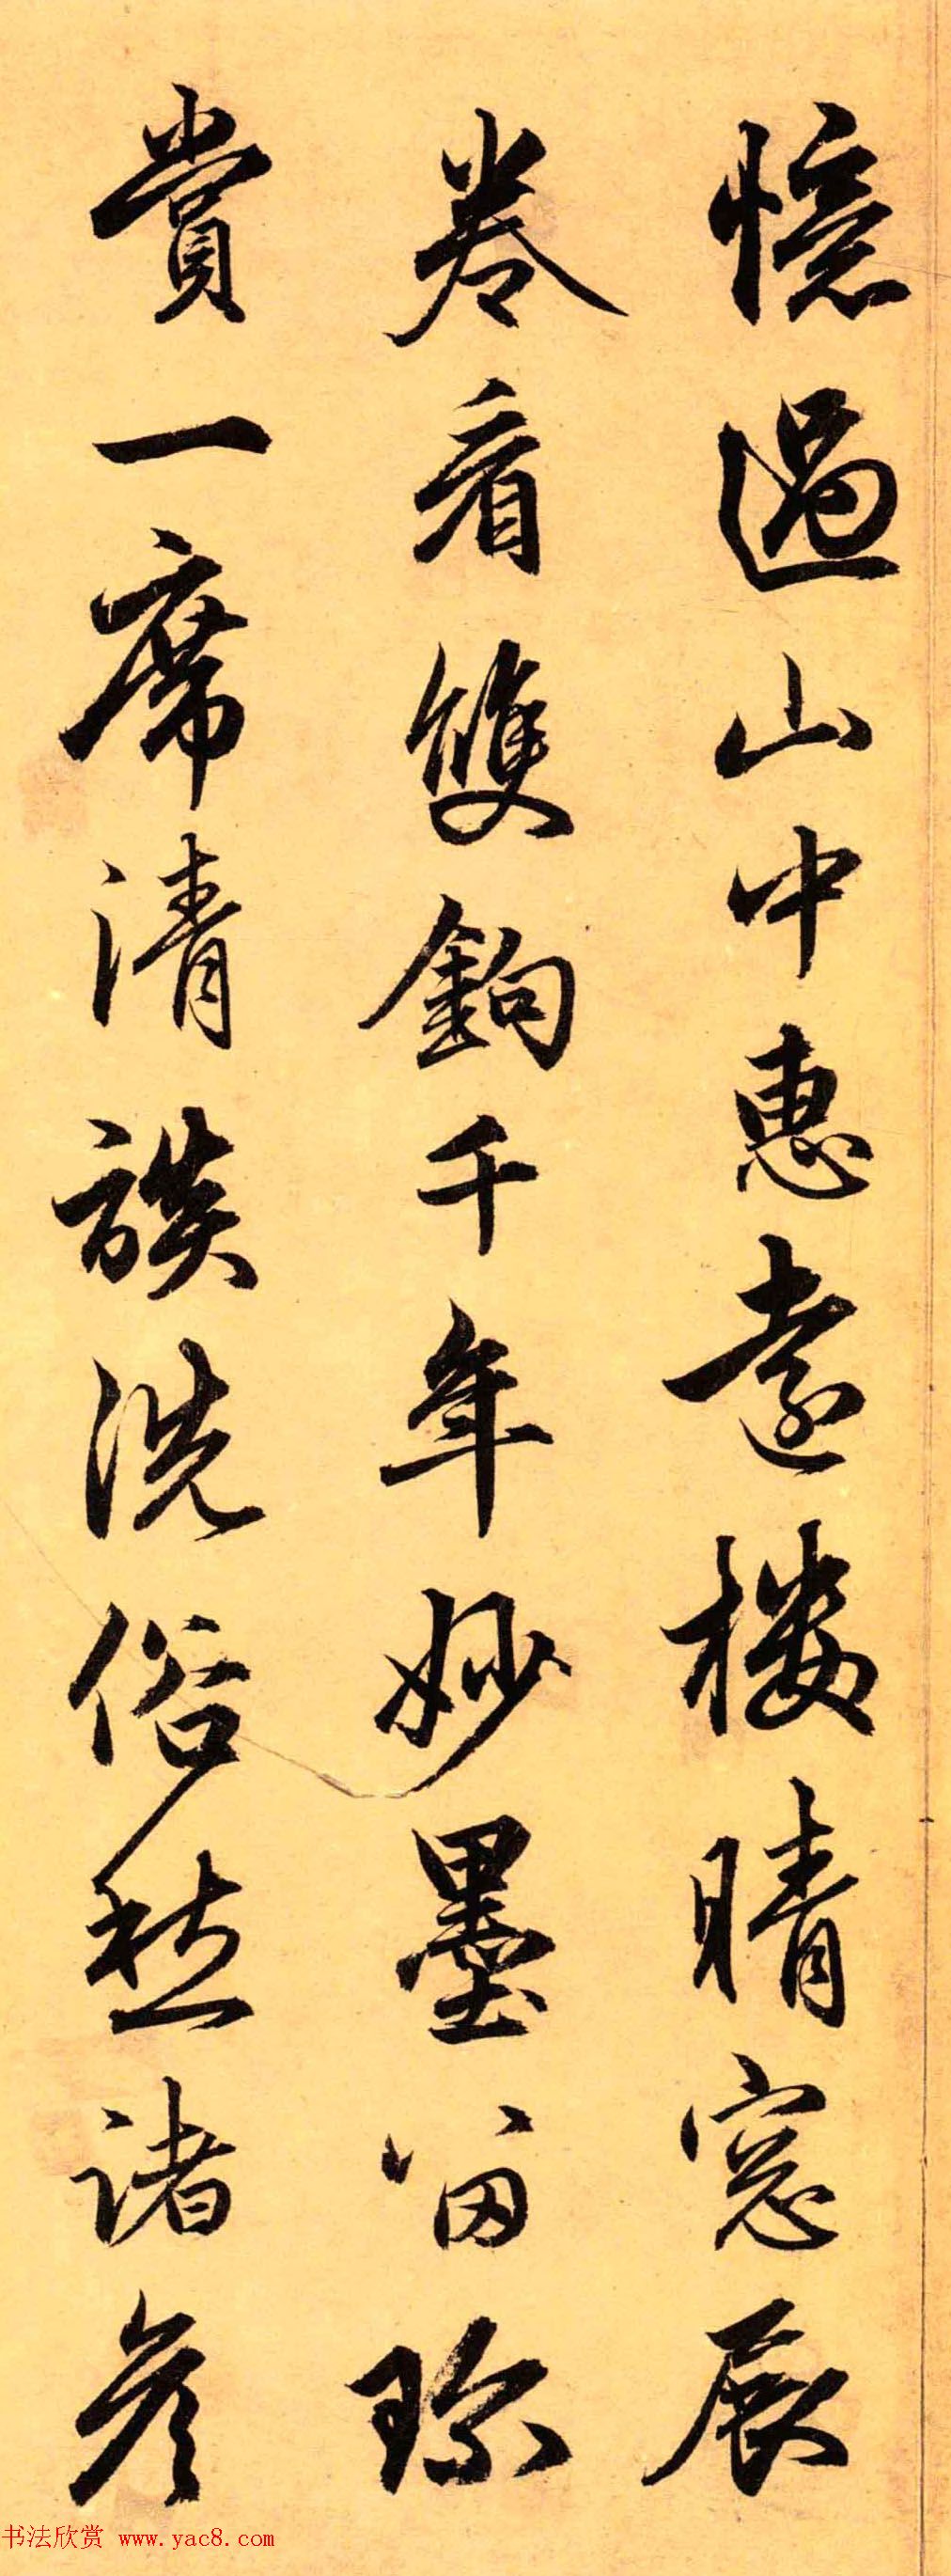 憶過山中惠遠樓晴窓展
卷看雙鉤千年妙墨留珍
賞一席清談洗俗愁諸彦
书法欣赏 www.yac8.com